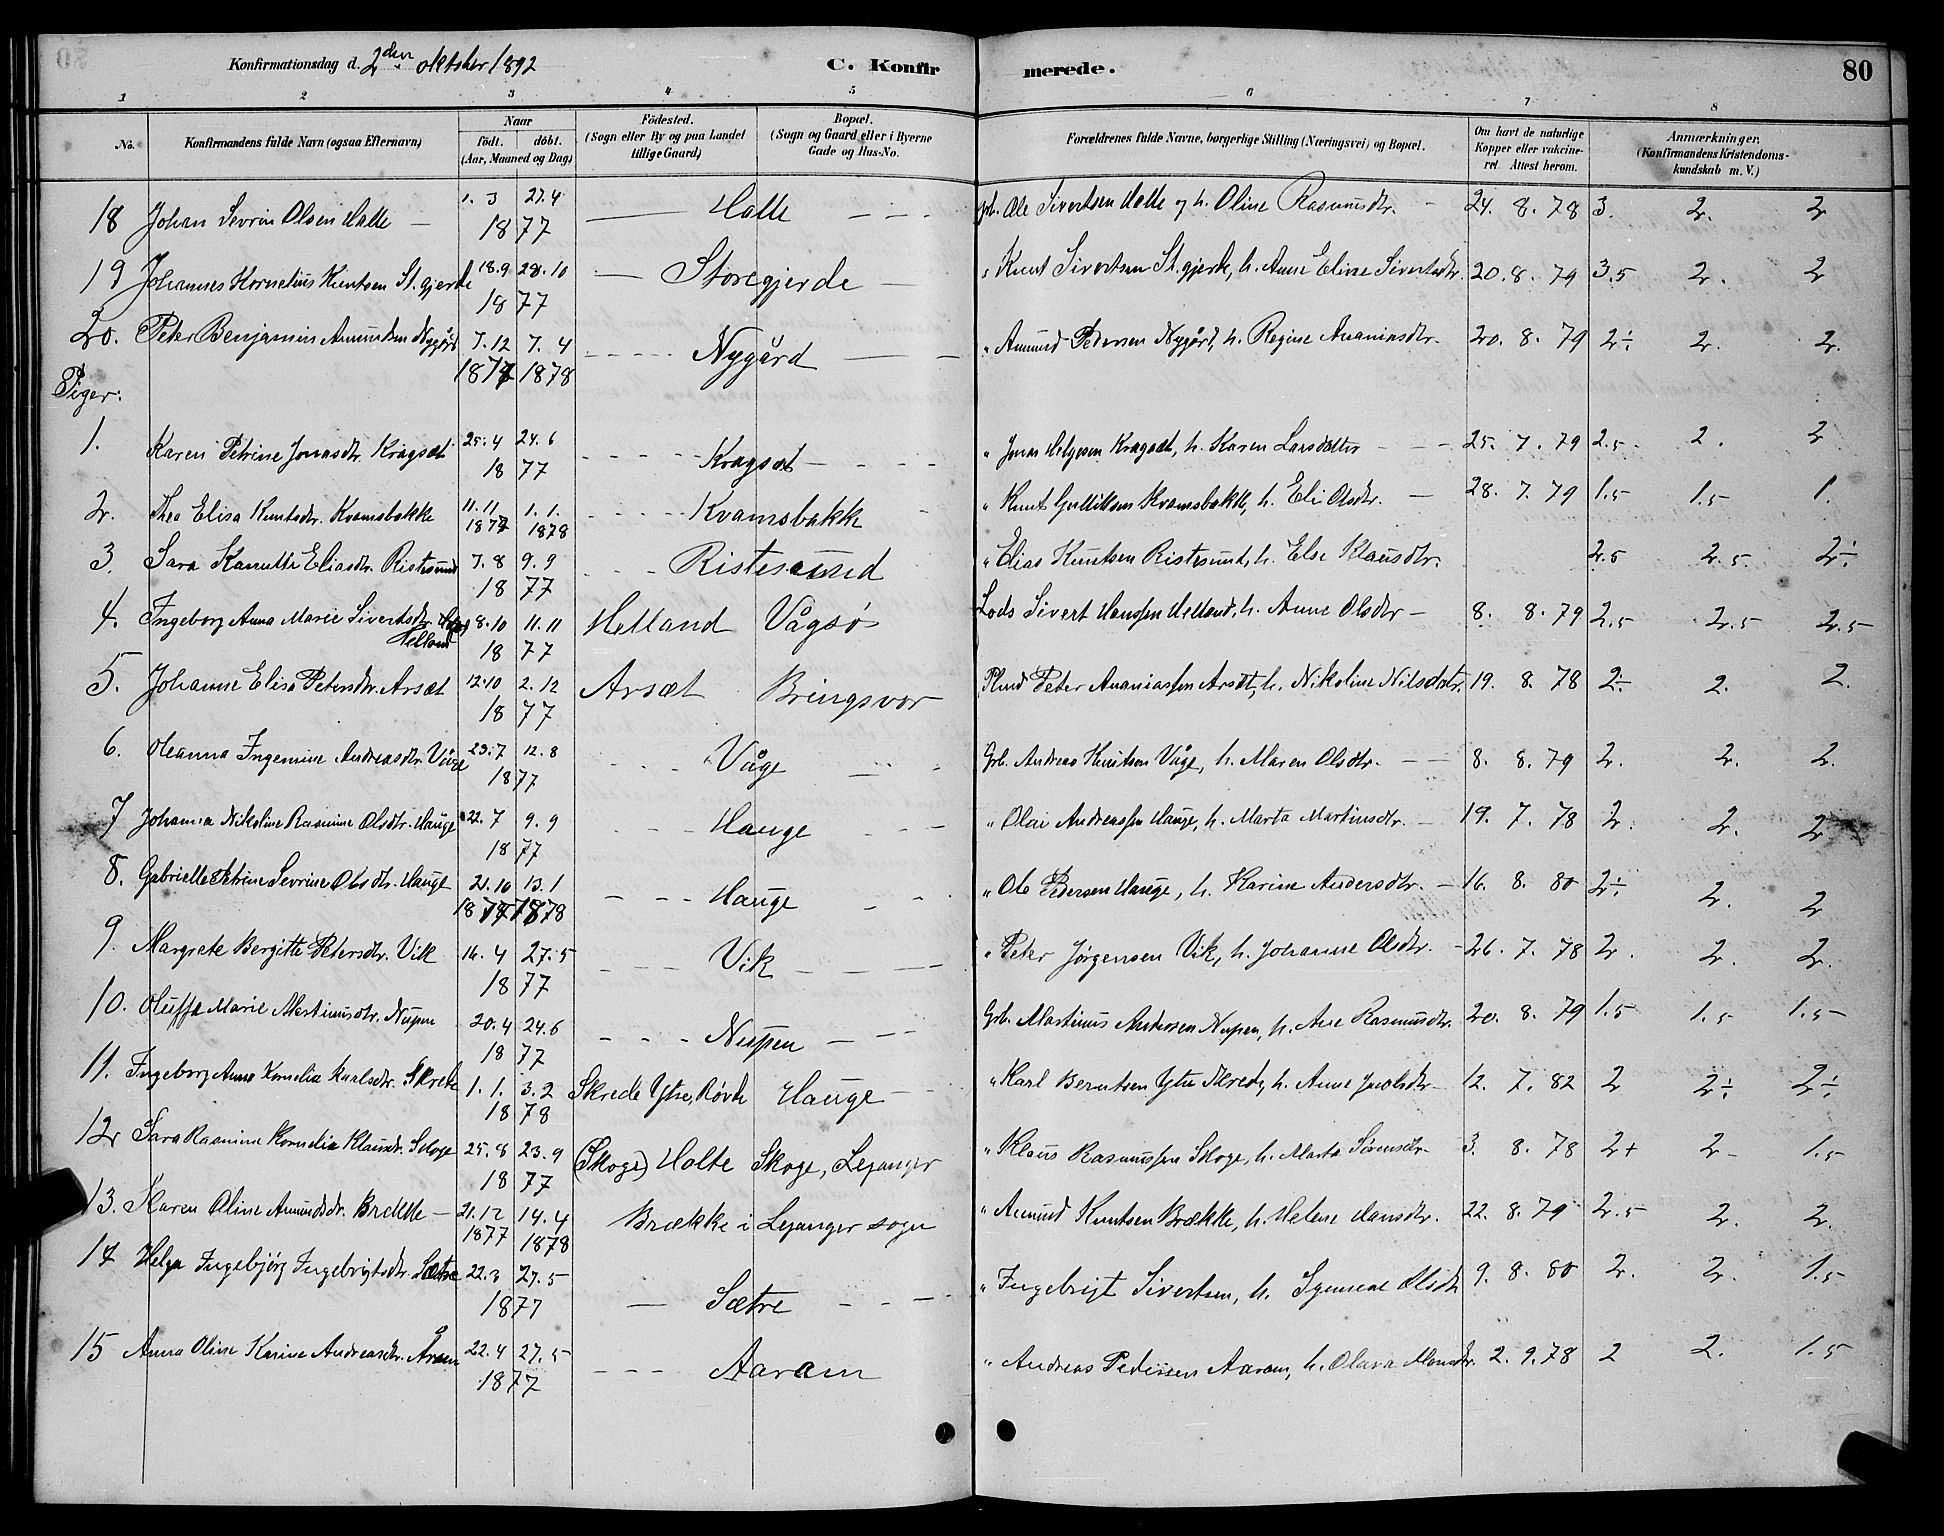 Konfirmationsdag d. 2den oktober 1892 C. Konfirmerede. 80
1 2 3 4 5 6 7 8
No. Konfirmandens fulde Navn (ogsaa Efternavn) Naar født. døbt. (Aar, Maaned og Dag) Fødested. (Sogn eller By og paa Landet tillige Gaard) Bopæl. (Sogn og Gaard eller i Byerne Gade og Hus-No. Forældrenes fulde Navne, borgerlige Stilling (Næringsvei) og Bopæl. Om havt de naturlige Kopper eller vakcineret. Attest herom. Anmærkninger. (Konfirmandens Kristendomskundskab m. V.)
18 Johan Sevrin Olsen Halle — 1. 3 27. 4 1877 — Halle — Grb. Ole Sivertsen Halle og h. Oline Rasmusdtr. 24. 8. 78 3. 2. 2
19 Johannes Kornelius Knutsen St.gjerde 18.9 28.10 1877 — Storegjerde — " Knut Sivertsen St.gjerde, h. Anne Eline Sivertsdtr. 20. 8. 79 3.5 2. 2
20. Peter Benjamin Amundsen Nygård 7.12 7. 4 1877 1878 Nygård — " Amund Pedersen Nygård, h. Regine Ananiasdtr. 20. 8. 79 2÷ 2. 2.
Piger:
1. Karen Petrine Jonasdtr. Kragsæt 25.4 24.6 1877 Kragsæt " Jonas Helgesen Kragsæt, h. Karen Larsdatter 25. 7. 79 2.5 2. 2
2. Thea Elisa Knutsdtr. Kvamsbakke 11.11 1.1. 1877 1878 Kvamsbakke " Knut Gullikson Kvamsbakke, h. Eli Olsdtr. 28. 7. 79 1.5 1.5 1.
3. Sara Kanutte Eliasdtr. Ristesund 7.8 9.9 1877 Ristesund " Elias Knutsen Ristesund, h. Else Klausdtr. 2.5 2.5 2÷
4. Ingeborg Anna Marie Sivertsdtr. Helland 8.10 11.11 1877 Helland Vågsø Lods Sivert Hansen Helland, h. Anne Olsdtr — 8. 8. 79 2.5 2.5 2.5
5. Johanne Elisa Petersdtr. Arsæt 12.10 2.12 1877 Arsæt Bringsvor Peter Ananiassen Arsæt, h. Nikoline Nilsdatr. 19. 8. 78 2÷ 2. 2.
6. Oleanna Ingemine Andreasdtr. Våge 23.7 12.8 1877 Våge Grb. Andreas Knutsen Våge, h. Maren Olsdtr. 8. 8. 79 2. 2. 2.
7 Johanna Nikoline Rasmine Olsdtr. Hauge 22.7 9.9 1877 Hauge " Olai Andreassen Hauge, h. Marta Martinsdtr. 19. 7. 78 2. 2. 2
8. Gabrielle Petrine Sevrine Olsdtr. Hauge 21.10 13.1 1877 1878 Hauge " Ole Pedersen Hauge, h. Karine Andersdtr. 16. 8. 80 2÷ 2. 2
9. Margrete Bergitte Petersdtr. Vik 16.4 27.5 1877 Vik " Peter Jørgensen Vik, h. Johanne Olsdtr. 26. 7. 78 2. 2. 2.
10. Oluffa Marie Martinusdtr. Nupen 20.4 24.6 1877 Nupen Grb. Martinus Andersen Nupen, h. Ane Rasmusdtr. 20. 8. 79 1.5 1.5 1.5
11. Ingeborg Anna Kornelia Karlsdtr. Skrede 1.1. 3.2 1878 Skrede Ytre, Røvde Hauge " Karl Berntsen Ytre Skrede, h. Anne Jacobsdtr 12. 7. 82 2 2÷ 2÷
12 Sara Rasmine Kornelia Klausdtr. Skoge 25.8 23.9 1877 (Skoge) Holte Skoge, Lejanger " Klaus Rasmussen Skoge, h. Marta Sørensdtr. 3. 8. 78 2+ 2 1.5
13. Karen Oline Amundsdr. Brække — 21.12 14.4 1877 1878 Brække i Lejanger sogn " Amund Knutsen Brække, h. Helene Hansdtr. 22. 8. 79 2.5 2. 2.
14 Helga Ingebjørg Ingebrigtsdtr. Sætre 22.3 27.5 1877 — Sætre " Ingebrigt Sivertsen, h. Olsdtr 9. 8. 80 2. 2. 1.5
15 Anna Oline Karine Andreasdtr. Åram 22.4 27.5 1877 Aaram " Andreas Pedersen Aaram, h. Olava 2. 9. 78 2 2. 1.5